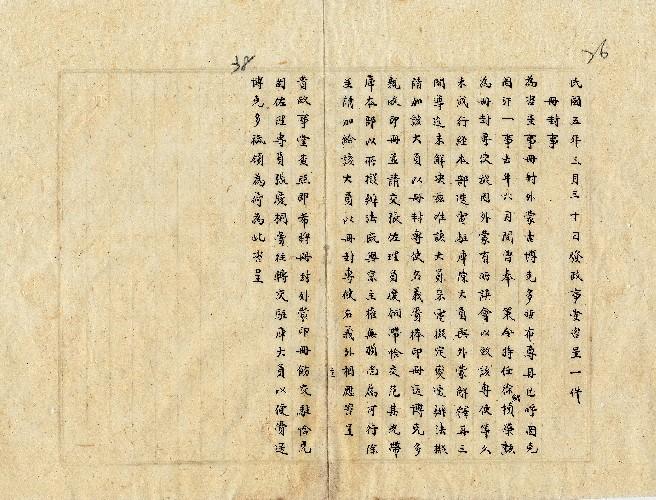 36
民國五年三月三十日發政事堂咨呈一件
冊封事
為咨呈事冊封外蒙古博克多哲布尊丹巴呼圖克
圖汗一事去年六月間曾奉 策令特任徐紹楨榮勳
為冊封專使旋因外蒙有誤會以致該專使等久
未成行經本部迭電駐庫陳大員與外蒙解釋再三
開導迄未解決茲准該大員來電擬定變通辦法擬
請加該大員以冊封專使名義賫捧印冊送博克多
親收印冊並請交張佐理員慶桐帶恰交范其光帶
庫本部以所擬辦法既與宗主權無損尚為可行除
呈請加給該大員以冊封專使名義外相應咨呈
38
貴政事堂查照即希將冊封外蒙印冊飭交駐恰克
圖佐理專員張慶桐賫往轉交駐庫大員以便賫送
博克多祗領為荷為此咨呈